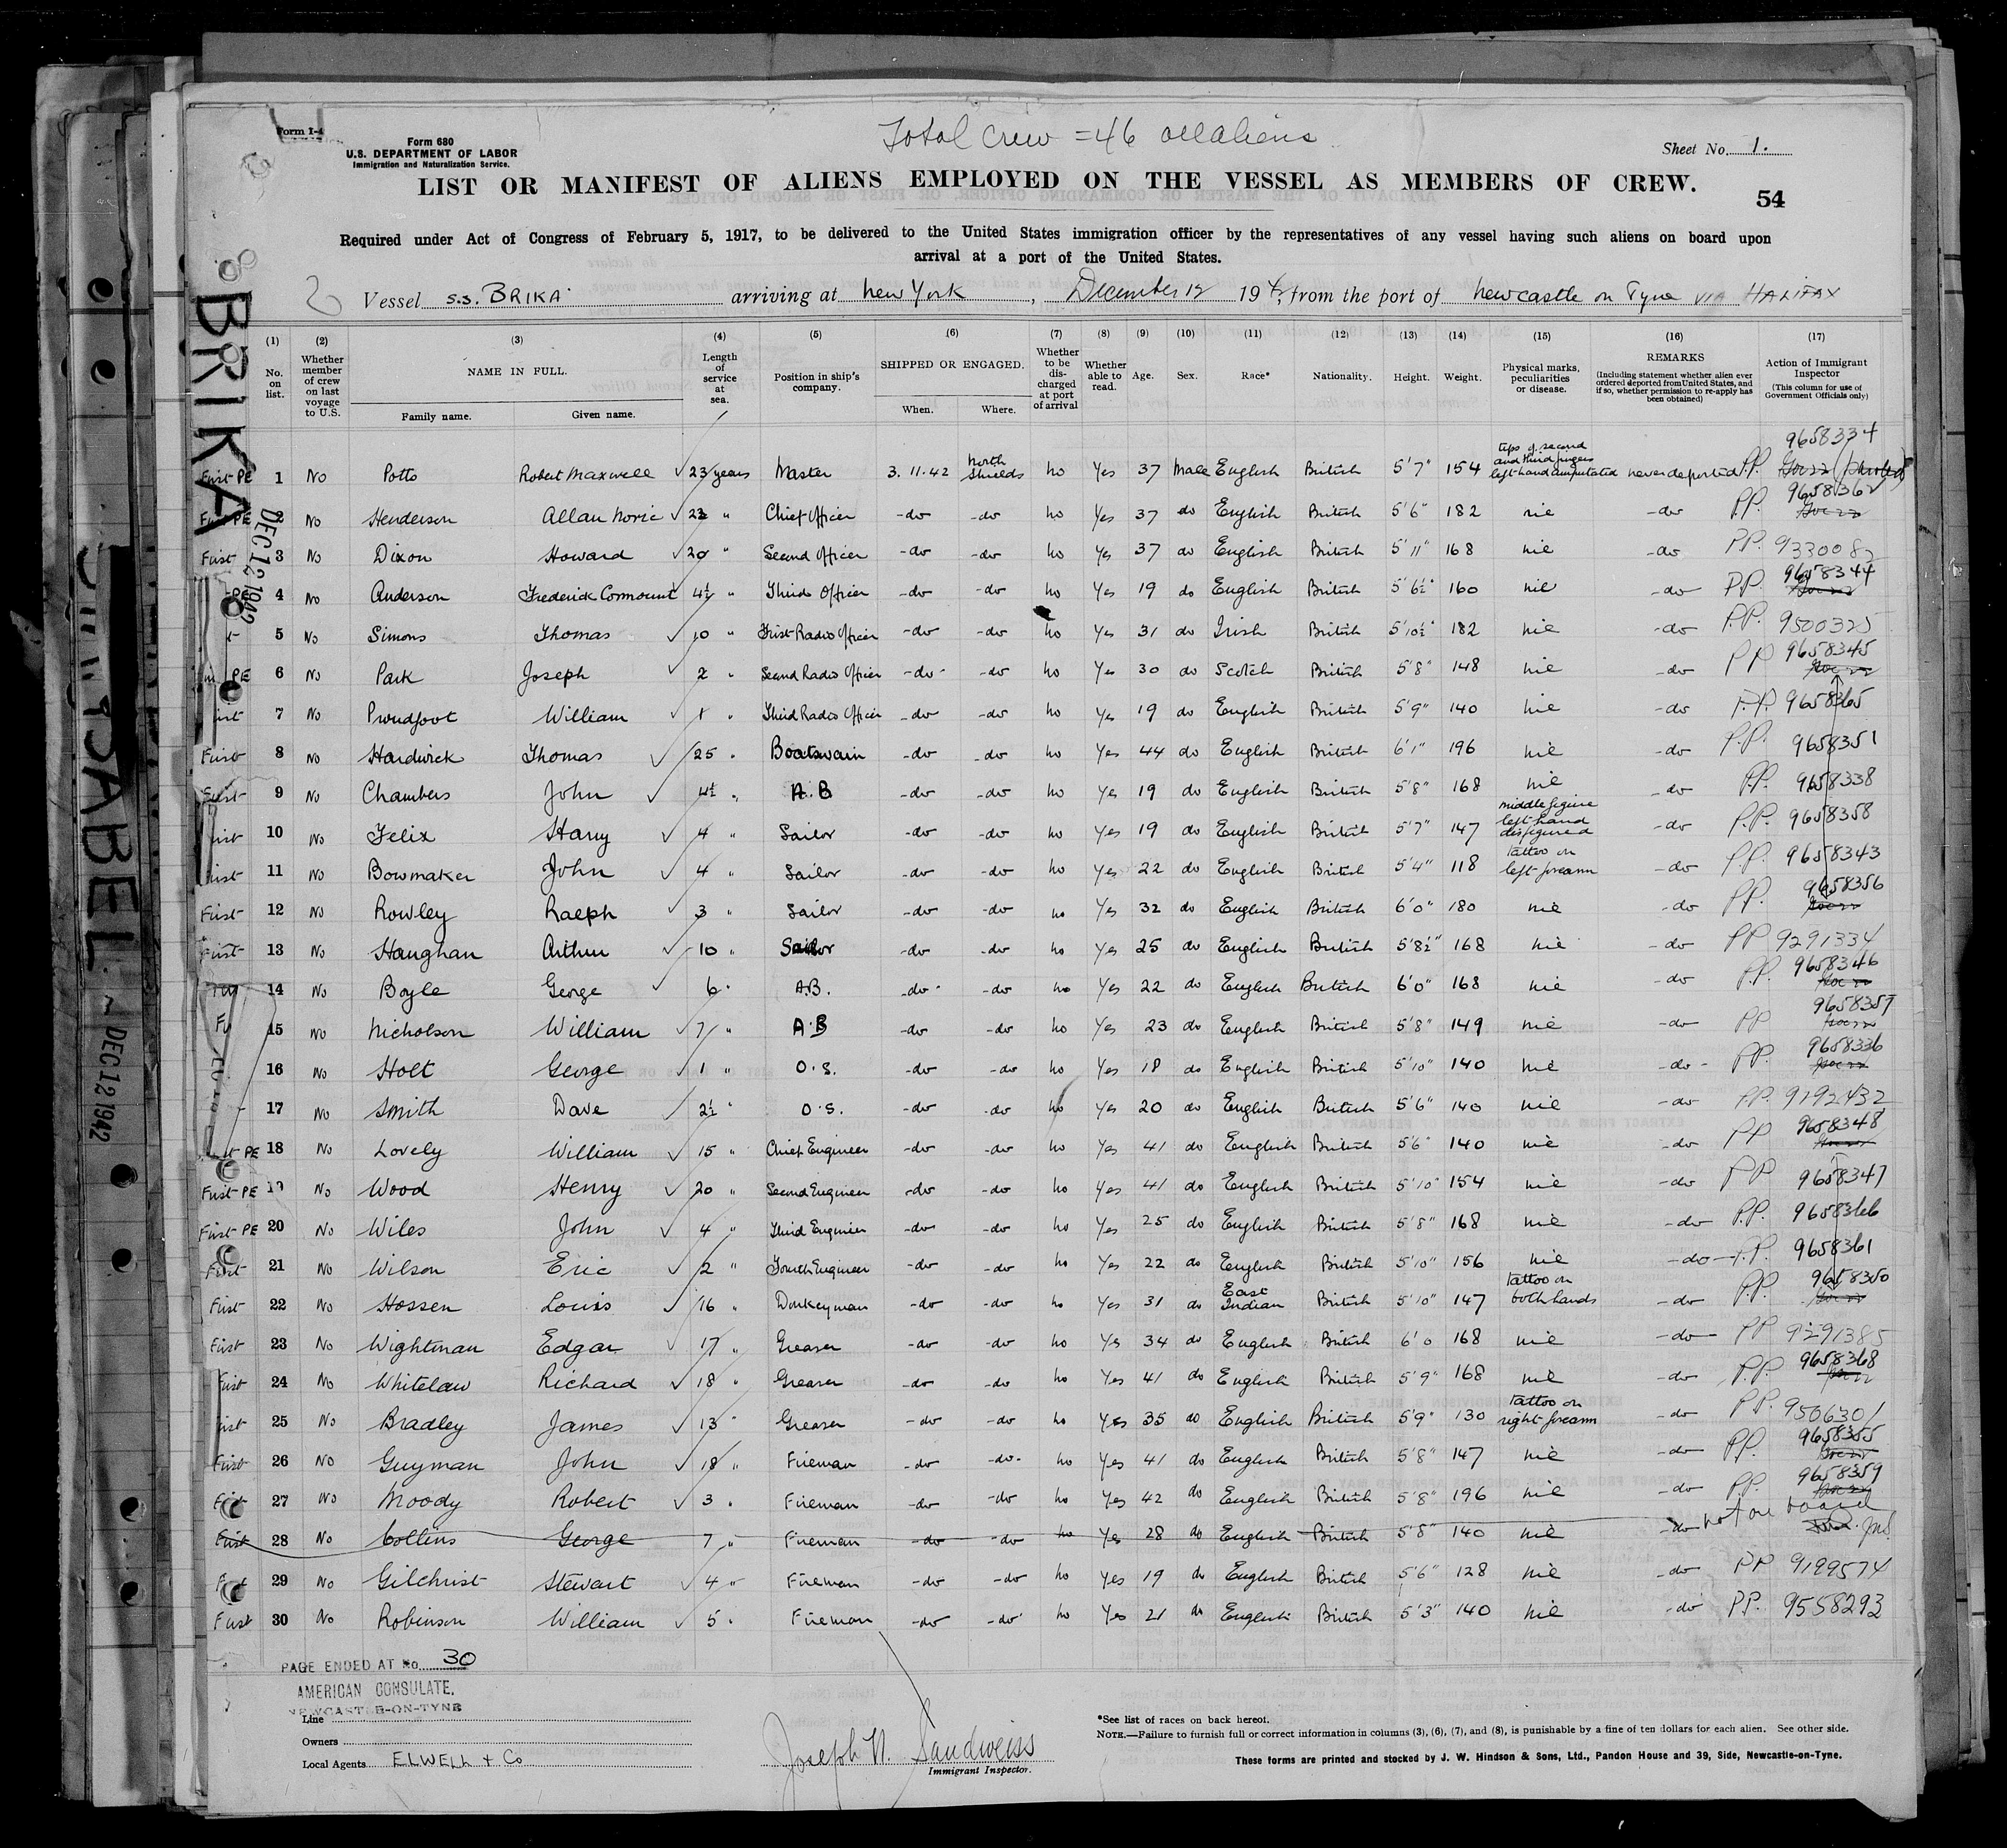 Form I-4
Form 680
U.S. DEPARTMENT OF LABOR
Immigration and Naturalization Service.
Total crew = 46 all aliens
Sheet No. 1.
LIST OR MANIFEST OF ALIENS EMPLOYED ON THE VESSEL AS MEMBERS OF CREW.
54
Required under Act of Congress of February 5, 1917, to be delivered to the United States immigration officer by the representatives of any vessel having such aliens on board upon
arrival at a port of the United States.
Vessel S.S. BRIKA arriving at New York, December 12 1942, from the port of Newcastle on Tyne VIA HALIFAX
(1) No. on list.
(2) Whether member of crew on last voyage to U.S.
(3) NAME IN FULL. Family name. Given name.
(4) Length of service at sea.
(5) Position in ship's company.
(6) SHIPPED OR ENGAGED. When. Where.
(7) Whether to be discharged at port of arrival
(8) Whether able to read.
(9) Age.
(10) Sex.
(11) Race*
(12) Nationality.
(13) Height.
(14) Weight.
(15) Physical marks, peculiarities or disease.
(16) REMARKS (Including statement whether alien ever ordered deported from United States, and if so, whether permission to re-apply has been obtained)
(17) Action of Immigrant Inspector (This column for use of Government Officials only)
First PE 1 No Potts Robert Maxwell 23 years Master 3.11.42 North Shields No Yes 37 Male English British 5'7" 154 tips of second and third fingers left hand amputated never deported P.P. 9658334
First PE 2 No Henderson Allan Norie 23 " Chief Officer -do- -do- No Yes 37 do English British 5'6" 182 nil -do- P.P. 9658362
First 3 No Dixon Howard 20 " Second Officer -do- -do- No Yes 37 do English British 5'11" 168 nil -do- P.P. 9330082
PE 4 No Anderson Frederick 4½ " Third Officer -do- -do- No Yes 19 do English British 5'6½" 160 nil -do- P.P. 9658344
5 No Simons Thomas 10 " First Radio Officer -do- -do- No Yes 31 do Irish British 5'10½" 182 nil -do- P.P. 9500325
PE 6 No Park Joseph 2 " Second Radio Officer -do- -do- No Yes 30 do Scotch British 5'8" 148 nil -do- P.P. 9658345
First 7 No Proudfoot William 1 " Third Radio Officer -do- -do- No Yes 19 do English British 5'9" 140 nil -do- P.P. 9658365
First 8 No Hardwick Thomas 25 " Boatswain -do- -do- No Yes 44 do English British 6'1" 196 nil -do- P.P. 9658351
First 9 No Chambers John 4½ " A.B -do- -do- No Yes 19 do English British 5'8" 168 nil -do- P.P. 9658338
First 10 No Felix Harry 4 " Sailor -do- -do- No Yes 19 do English British 5'7" 147 middle figure left hand disfigured -do- P.P. 9658358
First 11 No Bowmaker John 4 " Sailor -do- -do- No Yes 22 do English British 5'4" 118 tattoo on left forearm -do- P.P. 9658343
First 12 No Rowley Ralph 3 " Sailor -do- -do- No Yes 32 do English British 6'0" 180 nil -do- P.P. 9658356
First 13 No Haughan Arthur 10 " Sailor -do- -do- No Yes 25 do English British 5'8½" 168 nil -do- P.P. 9291334
14 No Boyle George 6 " A.B. -do- -do- No Yes 22 do English British 6'0" 168 nil -do- P.P. 9658346
15 No Nicholson William 7 " A.B -do- -do- No Yes 23 do English British 5'8" 149 nil -do- P.P. 9658357
16 No Holt George 1 " O.S. -do- -do- No Yes 18 do English British 5'10" 140 nil -do- P.P. 9658336
17 No Smith Dave 2½ " O.S. -do- -do- No Yes 20 do English British 5'6" 140 nil -do- P.P. 9192432
PE 18 No Lovely William 15 " Chief Engineer -do- -do- No Yes 41 do English British 5'6" 140 nil -do- P.P. 9658348
First PE 19 No Wood Henry 20 " Second Engineer -do- -do- No Yes 41 do English British 5'10" 154 nil -do- P.P. 9658347
First PE 20 No Wiles John 4 " Third Engineer -do- -do- No Yes 25 do English British 5'8" 168 nil -do- P.P. 9658366
First 21 No Wilson Eric 2 " Fourth Engineer -do- -do- No Yes 22 do English British 5'10" 156 nil -do- P.P. 9658361
First 22 No Hossen Louis 16 " Donkeyman -do- -do- No Yes 31 do East Indian British 5'10" 147 tattoo on both hands -do- P.P. 9658350
First 23 No Wightman Edgar 17 " Greaser -do- -do- No Yes 34 do English British 6'0 168 nil -do- P.P. 9291385
First 24 No Whitelaw Richard 18 " Greaser -do- -do- No Yes 41 do English British 5'9" 168 nil -do- P.P. 9658368
First 25 No Bradley James 13 " Greaser -do- -do- No Yes 35 do English British 5'9" 130 tattoo on right forearm -do- P.P. 9506301
First 26 No Guyman John 18 " Fireman -do- -do- No Yes 41 do English British 5'8" 147 nil -do- P.P. 9658355
First 27 No Moody Robert 3 " Fireman -do- -do- No Yes 42 do English British 5'8" 196 nil -do- P.P. 9658359
First 28 No Collins George 7 " Fireman -do- -do- No Yes 28 do English British 5'8" 140 nil -do- not on board
29 No Gilchrist Stewart 4 " Fireman -do- -do- No Yes 19 do English British 5'6" 128 nil -do- P.P. 9199574
First 30 No Robinson William 5 " Fireman -do- -do- No Yes 21 do English British 5'3" 140 nil -do- P.P. 9558293
PAGE ENDED AT No. 30
AMERICAN CONSULATE,
NEWCASTLE-ON-TYNE
Line
Owners
Local Agents ELWELL & Co
Joseph N. Sandweiss
Immigrant Inspector.
*See list of races on back hereof.
NOTE.—Failure to furnish full or correct information in columns (3), (6), (7), and (8), is punishable by a fine of ten dollars for each alien. See other side.
These forms are printed and stocked by J. W. Hindson & Sons, Ltd., Pandon House and 39, Side, Newcastle-on-Tyne.
BRIKA
DEC 12 1942
DEC 12 1942